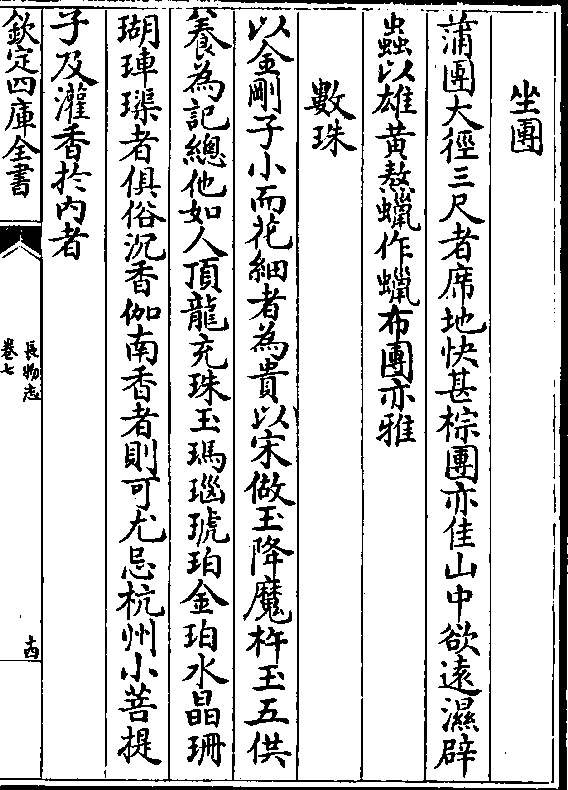 坐團
蒲團大徑三尺者席地快甚棕團亦佳山中欲遠濕辟
蟲以雄黃熬蠟作蠟布團亦雅
數珠
以金剛子小而花細者為貴以宋做玉降魔杵玉五供
養為記總他如人頂龍充珠玉瑪瑙琥珀金珀水晶珊
瑚硨磲者俱俗沉香伽南香者則可尤忌杭州小菩提
子及灌香於內者
欽定四庫全書
長物志
卷七
十四